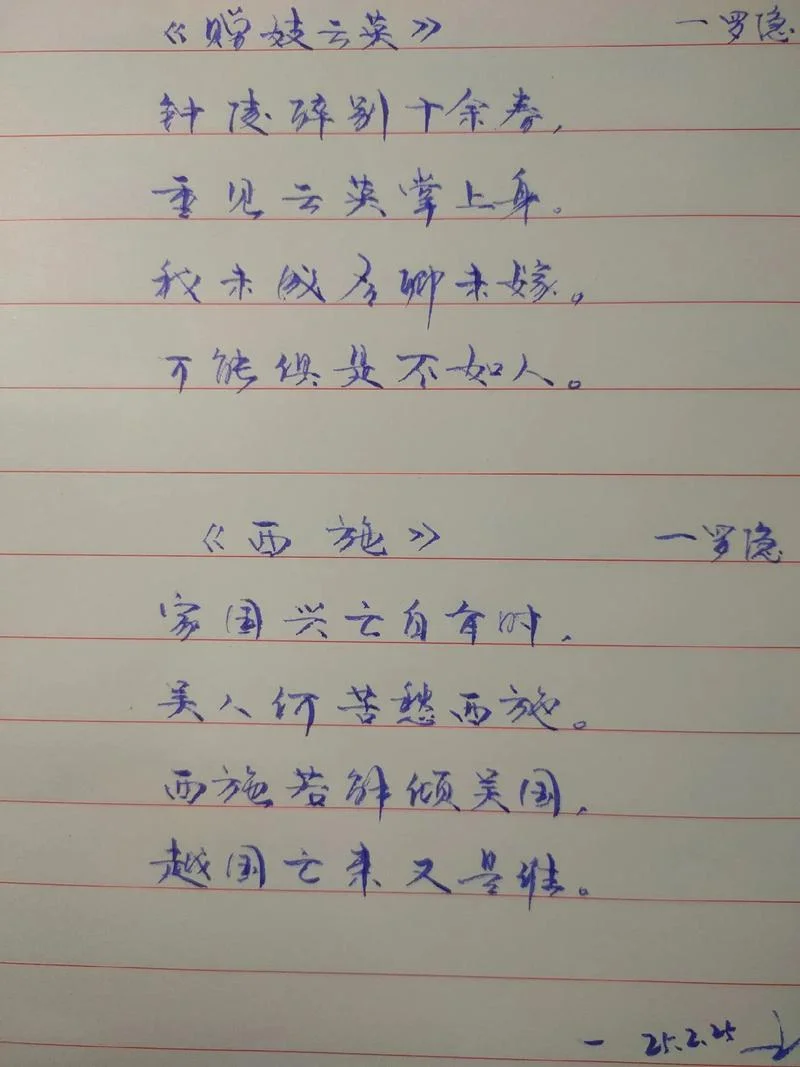 《赠妓云英》 —罗隐
钟陵醉别十余春,
重见云英掌上身。
我未成名卿未嫁。
可能俱是不如人。
《西施》 —罗隐
家国兴亡自有时,
吴人何苦愁西施。
西施若解倾吴国,
越国亡来又是谁。
— 25.2.25